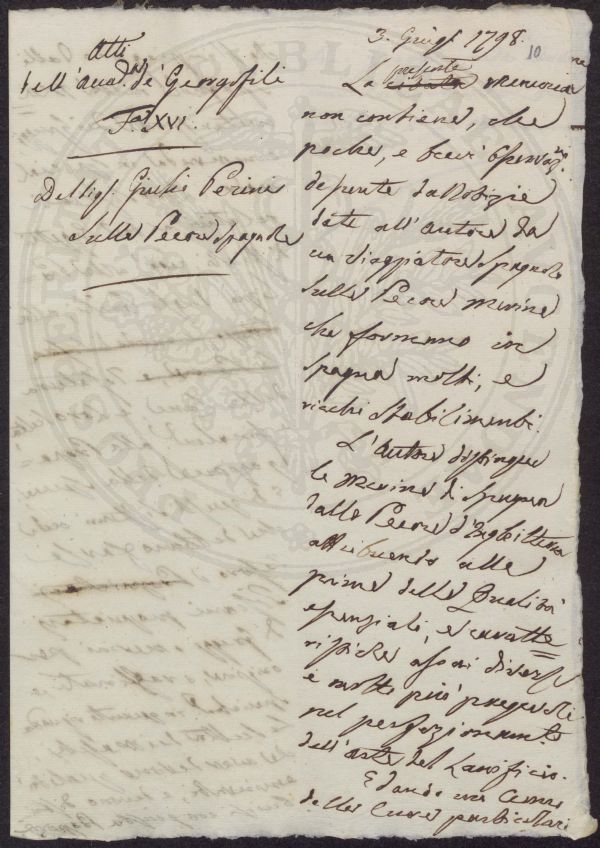 Atti
dell'Accad.a de' Georgofili
T. XVI.
Del Sig. Giulio Perini
Sulle Pecore Spagnole
3. Giug. 1798.
10
presente
La memoria
non contiene, che
poche, e brevi Osservaz.ni
desunte da Notizie
date all'Autore da
un Viaggiatore Spagnolo
sulle Pecore merine
che formano in
Spagna molti, e
ricchi Stabilimenti.
L'Autore distingue
le merine di Spagna
dalle Pecore d'Inghilterra
attribuendo alle
prime delle Qualità
essenziali, e caratte=
ristiche assai diverse
e molto più pregevoli
nel perfezionamento
dell'arte del Lanificio.
E dando un Cenno
delle Cure particolari